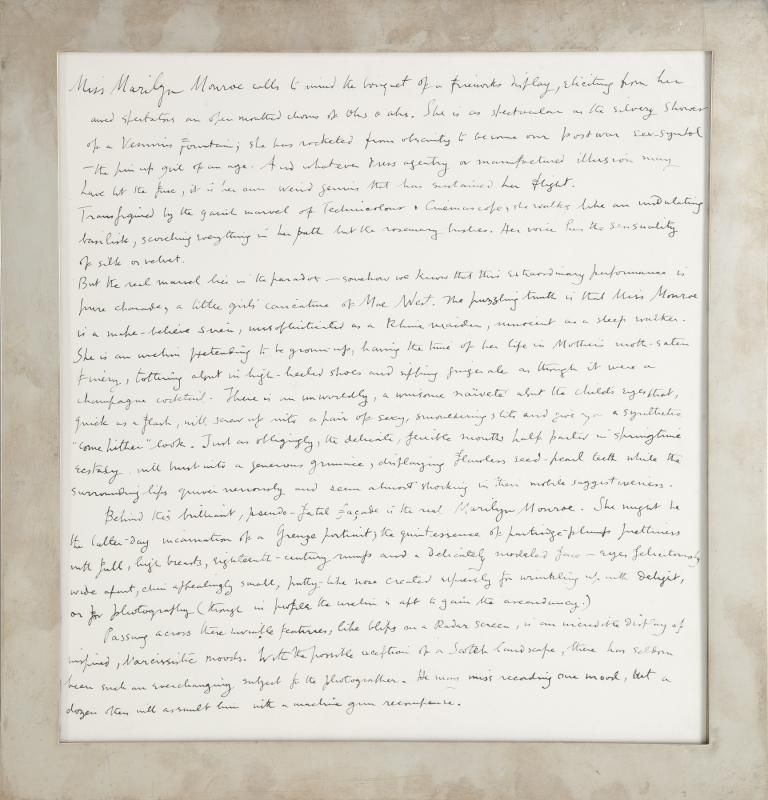 Miss Marilyn Monroe calls to mind the bouquet of a fireworks display, eliciting from her
awed spectators an open mouthed chorus of Ohs & ahs. She is as spectacular as the silvery shower
of a Vesuvius Fountain; she has rocketed from obscurity to become our postwar sex-symbol
– the pin up girl of an age. And whatever press agentry or manufactured illusion may
have lit the fuse, it is her own weird genius that has sustained her flight.
Transfigured by the garish marvel of Technicolour & Cinemascope, she walks like an undulating
basilisk, scorching everything in her path but the rosemary bushes. Her voice has the sensuality
of silk or velvet.
But the real marvel lies in the paradox – somehow we know that this extraordinary performance is
pure charade, a little girl's caricature of Mae West. The puzzling truth is that Miss Monroe
is a make-believe siren, unsophisticated as a Rhine maiden, innocent as a sleep walker.
She is an urchin pretending to be grown-up, having the time of her life in Mother's moth-eaten
finery, tottering about in high-heeled shoes and sipping ginger ale as though it were a
champagne cocktail. There is an unworldly, a winsome naïveté about the child's eyes that,
quick as a flash, will screw up into a pair of sexy, smouldering slits and give you a synthetic
"come hither" look. Just as obligingly, the delicate, flexible mouth half parted in springtime
ecstasy will burst into a generous grimace, displaying flawless seed-pearl teeth while the
surrounding lips quiver nervously and seem almost shocking in their mobile suggestiveness.
Behind this brilliant, pseudo-fatal façade is the real Marilyn Monroe. She might be
the latter-day incarnation of a Greuze portrait; the quintessence of partridge-plump prettiness
with full, high breasts, eighteenth-century rump and a delicately modeled face – eyes felicitously
wide apart, chin appealingly small, putty-like nose created expressly for wrinkling up with delight,
or for photography (though in profile the urchin is apt to gain the ascendancy.)
Passing across these invisible features, like blips on a Radar screen, is an incredible display of
inspired, Narcissistic moods. With the possible exception of a Scotch landscape, there has seldom
been such an everchanging subject for the photographer. He may miss recording one mood, but a
dozen others will assault him with a machine gun recompense.